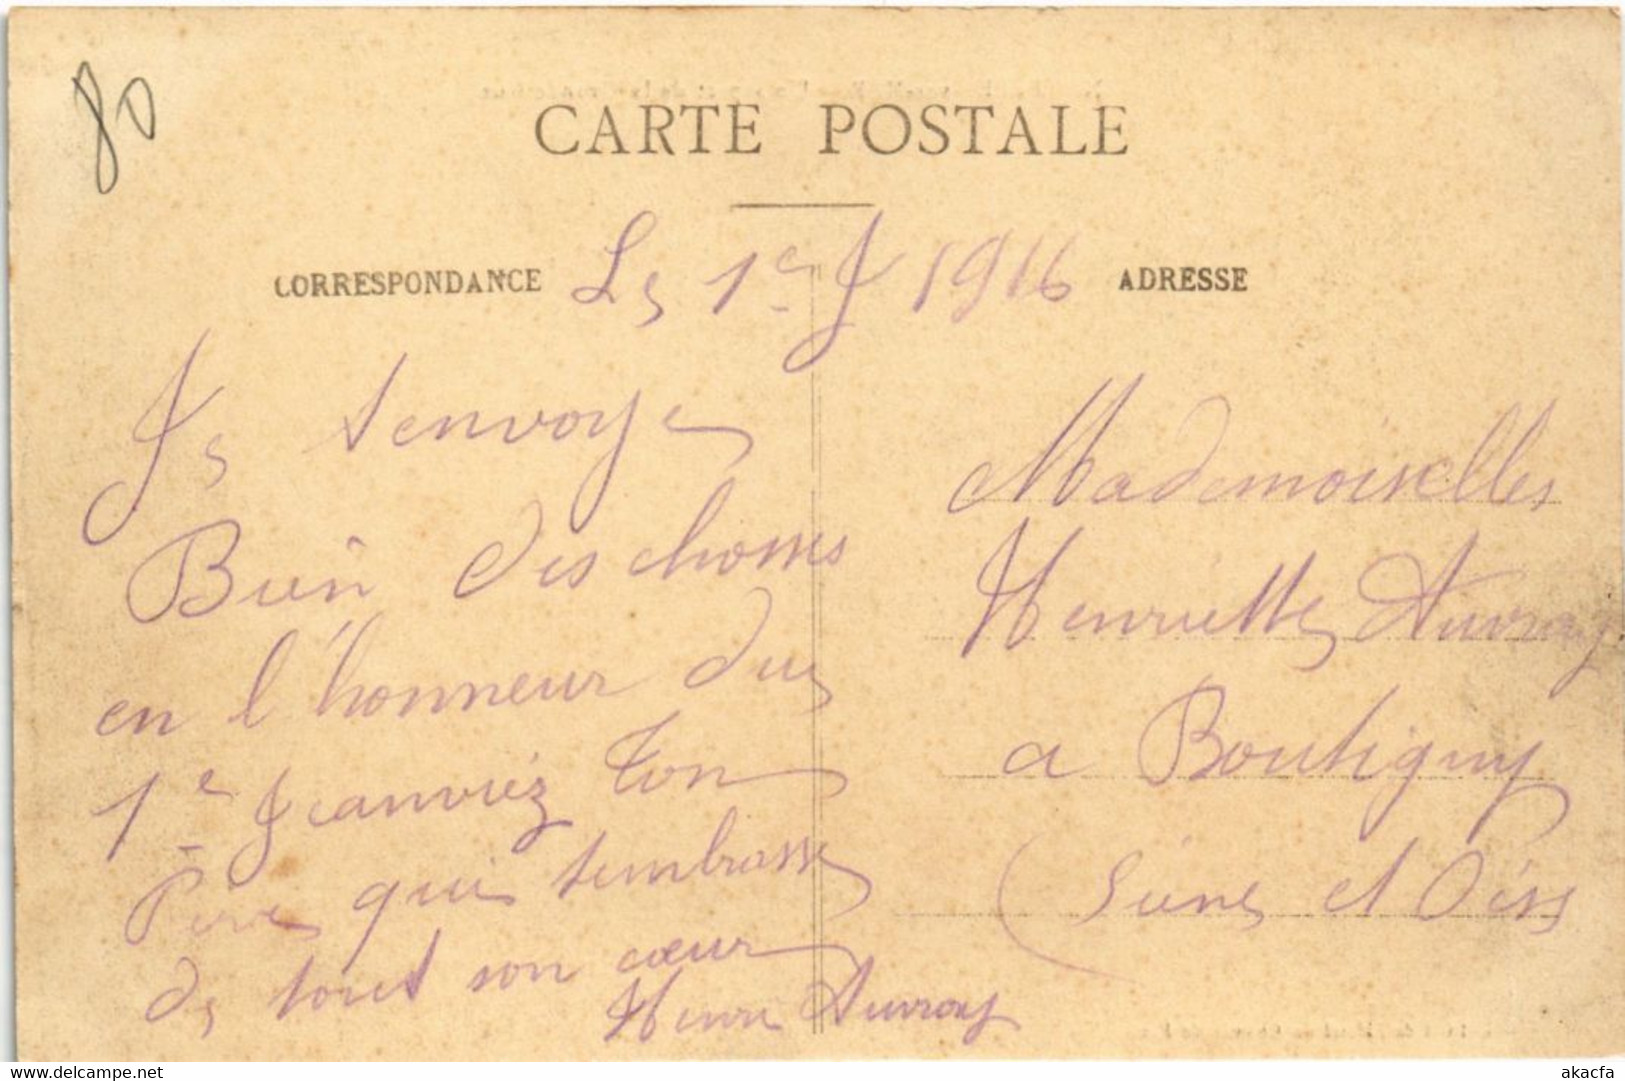 80
CARTE POSTALE
CORRESPONDANCE
Le 1e J 1916
ADRESSE
Je tenvoye
Bien des choses
en l'honneur du
1e Jeanviez Ton
Père qui tembrasse
de tout son cœur
Henri Auvray
Mademoiselles
Henriette Auvray
a Boutigny
(Seine et Oise
delcampe.net
akacfa